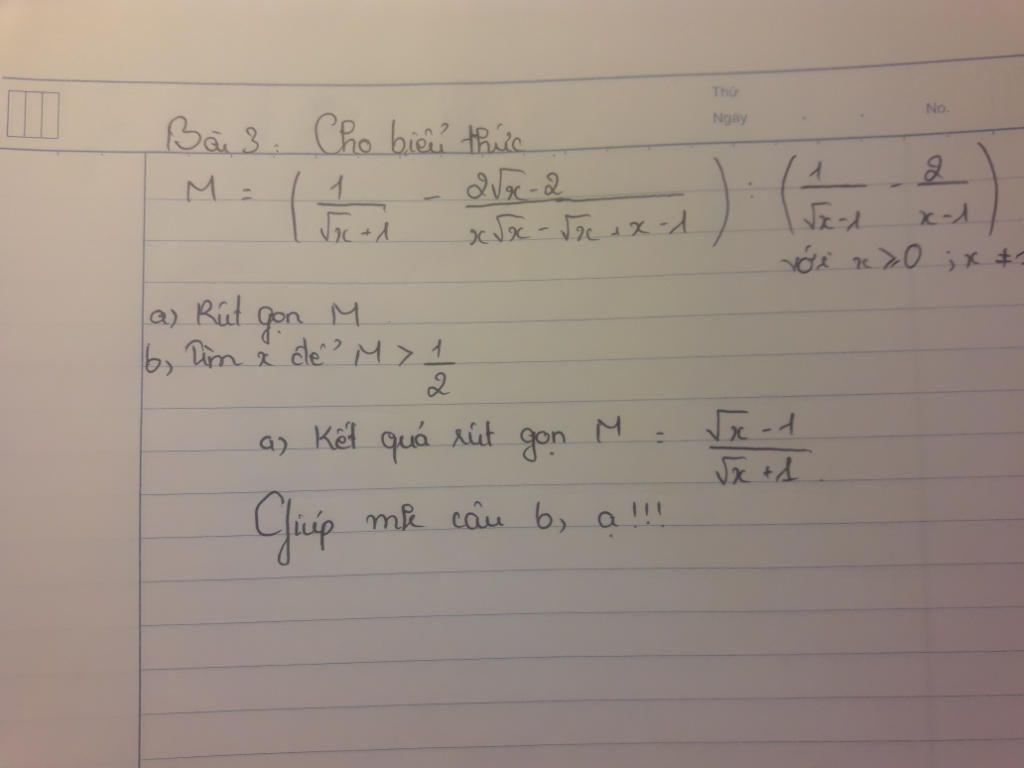 Thứ
Ngày . . No.
Bài 3. Cho biểu thức
M = ( 1/(√x+1) - (2√x-2)/(x√x-√x+x-1) ) : ( 1/(√x-1) - 2/(x-1) )
với x ⩾ 0 ; x ≠
a) Rút gọn M
b, Tìm x để M > 1/2
a) Kết quả rút gọn M = (√x-1)/(√x+1)
Giúp mk câu b, ạ!!!